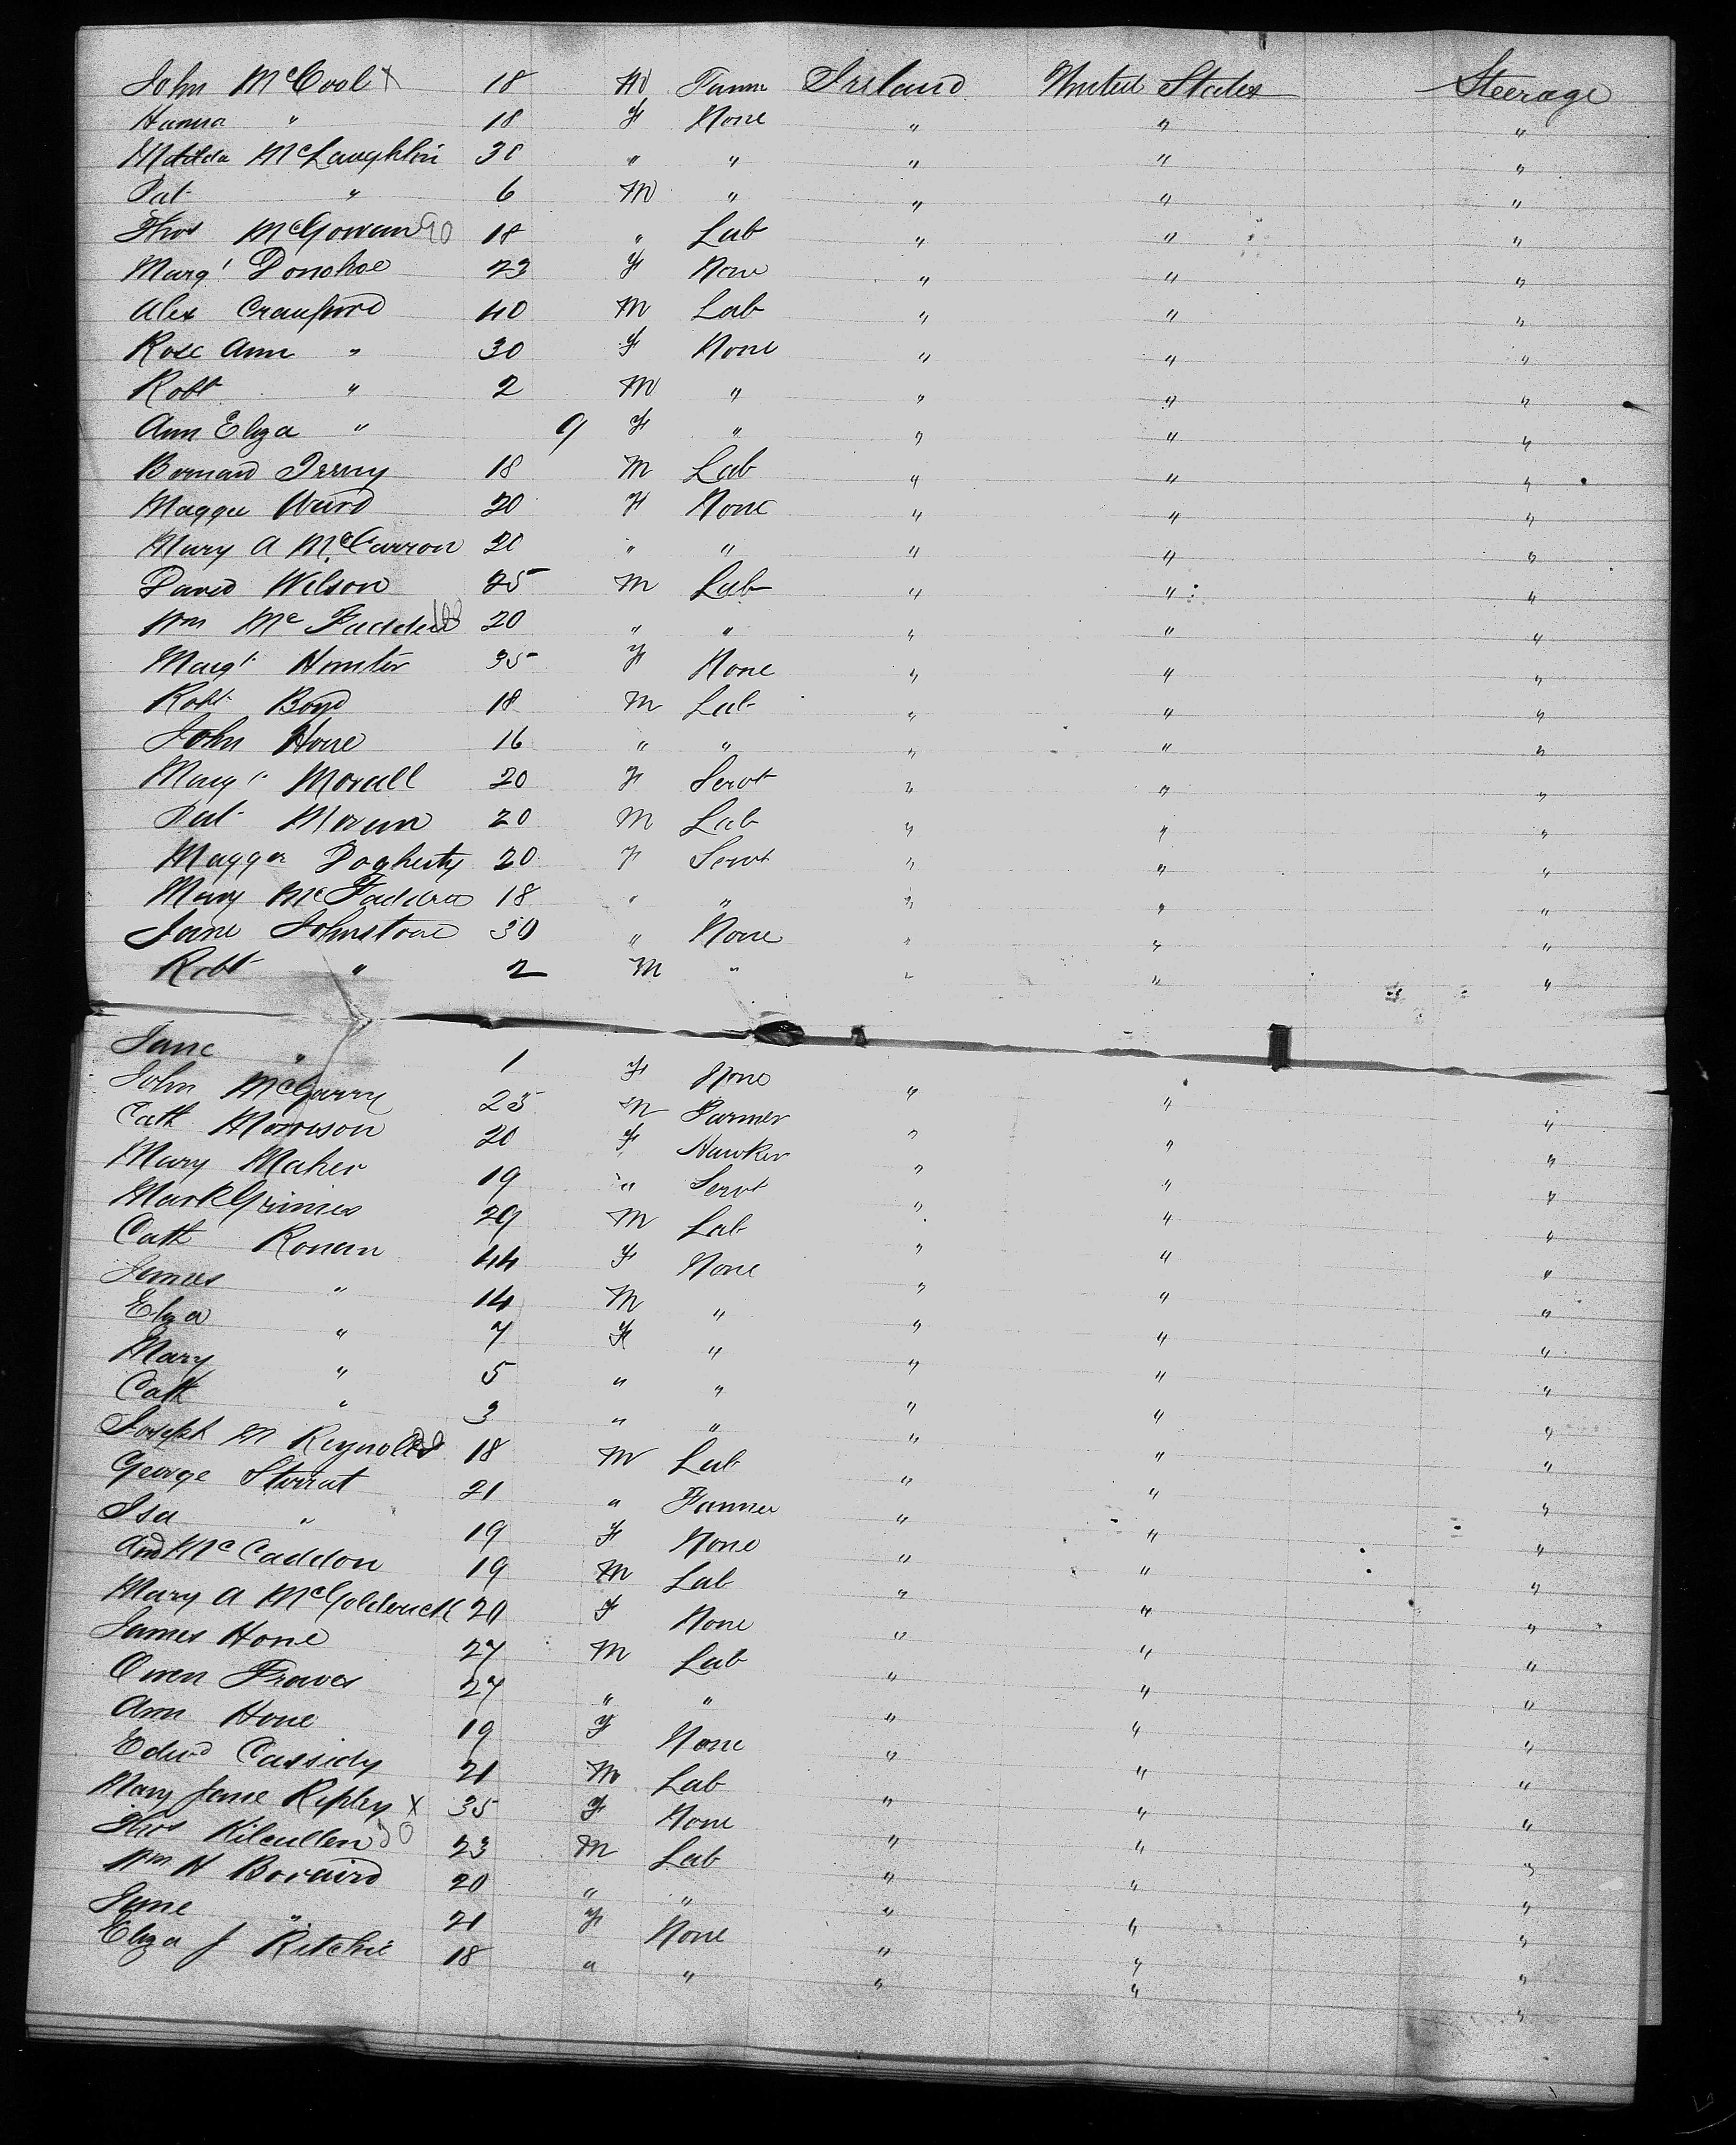 John McCool x 18 M Farm Ireland United States Steerage
Hanna " 18 F None " " "
Matilda McLaughlin 30 " " " " "
Pat " 6 M " " " "
Thos McGowan 90 18 " Lab " " "
Margt Donohoe 23 F None " " "
Alex Crawford 40 M Lab " " "
Rose Ann " 30 F None " " "
Robt " 2 M " " " "
Ann Eliza " 9 F " " " "
Bernard 18 M Lab " " "
Maggie Ward 20 F None " " "
Mary A McCarron 20 " " " " "
David Wilson 25 M Lab " " "
Wm McFadden 20 " " " " "
Margt Hunter 35 F None " " "
Robt Boyd 18 M Lab " " "
John Hone 16 " " " " "
Margt Morall 20 F Servt " " "
Pat Moran 20 M Lab " " "
Maggie Dogherty 20 F Servt " " "
Mary McFadden 18 " " " " "
Jane Johnstone 30 " None " " "
Robt " 2 M " " " "
Jane " 1 F None " " "
John McGarry 25 M Farmer " " "
Cath Morrison 20 F Hawker " " "
Mary Maher 19 " Servt " " "
Mark Grimes 29 M Lab " " "
Cath Ronan 44 F None " " "
James " 14 M " " " "
Eliza " 7 F " " " "
Mary " 5 " " " " "
Cath " 3 " " " " "
Joseph M Reynolds 18 M Lab " " "
George Sturrat 21 " Farmer " " "
Isa " 19 F None " " "
And McCaddon 19 M Lab " " "
Mary A McGolderick 20 F None " " "
James Hone 27 M Lab " " "
Owen 27 " " " " "
Ann Hone 19 F None " " "
Edwd Cassidy 21 M Lab " " "
Mary Jane Ripley x 35 F None " " "
Thos Kilcullen 30 23 M Lab " " "
Wm H Boraird 20 " " " " "
Jane " 21 F None " " "
Eliza J Ritchie 18 " " " " "